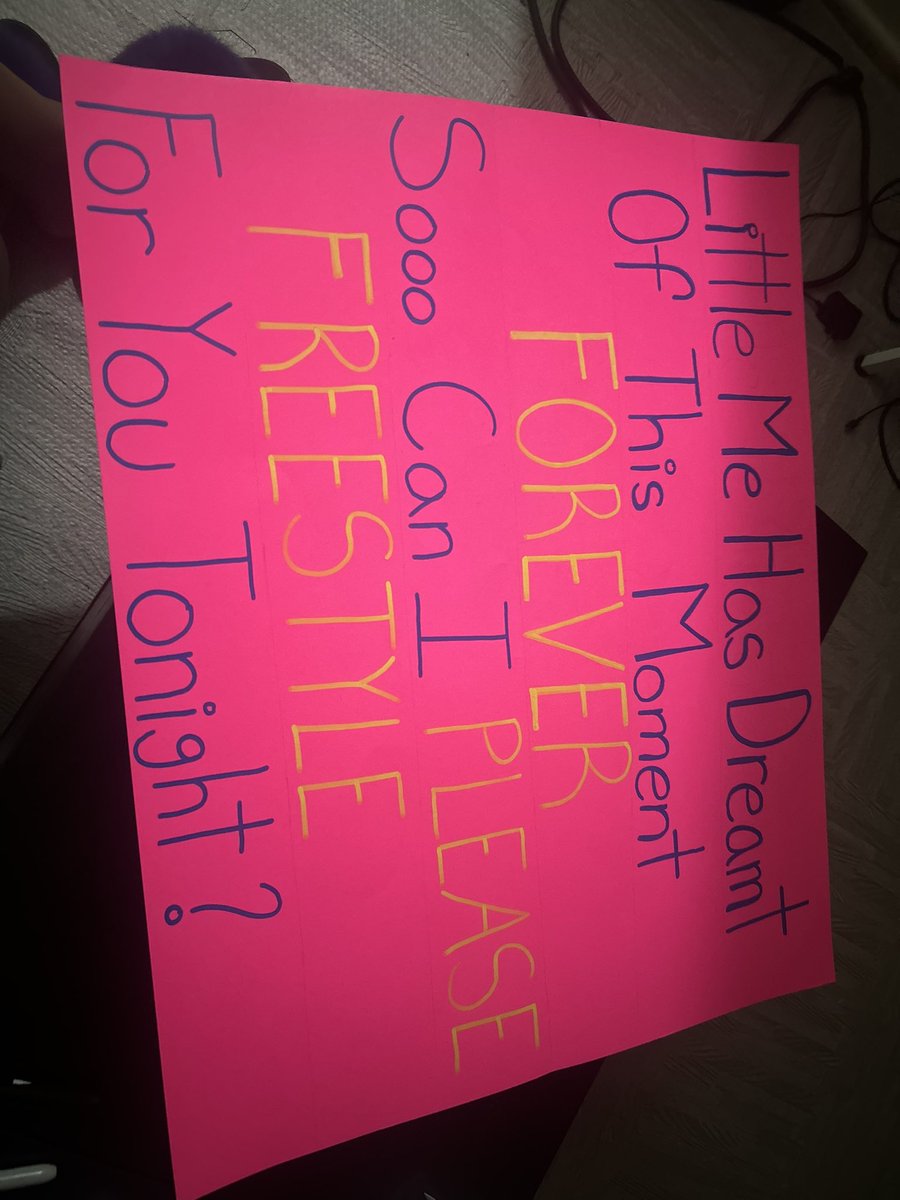 Little Me Has Dreamt
Of This Moment
FOREVER
Sooo Can I PLEASE
FREESTYLE
For You Tonight?